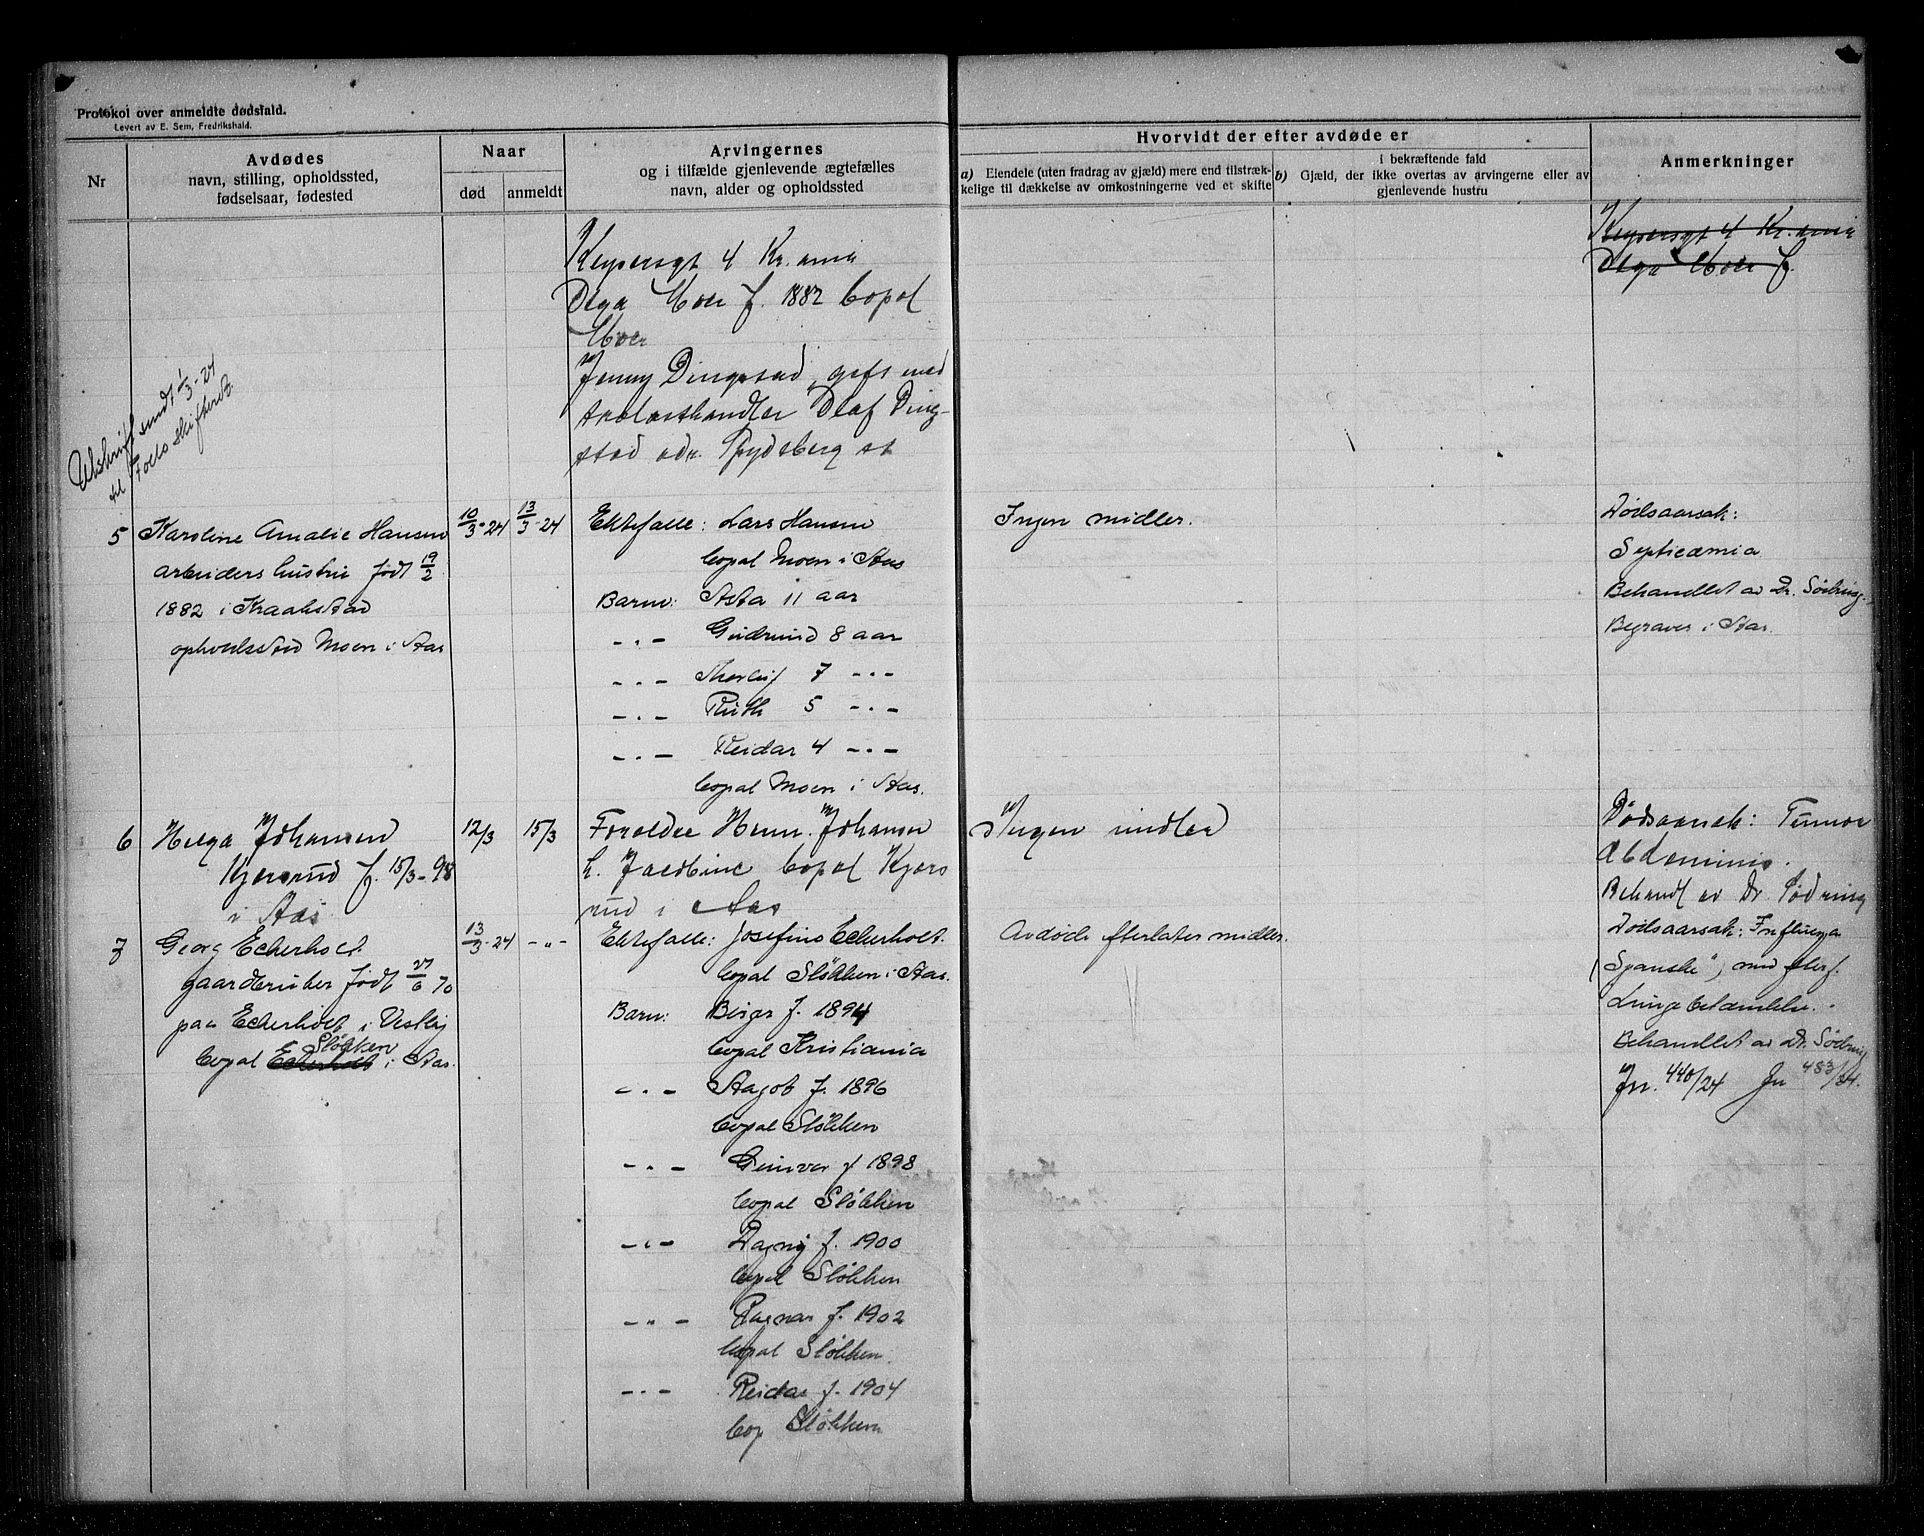 Protokol over anmeldte dødsfald.
Levert av E. Sem, Fredrikshald.
Nr
Avdødes
navn, stilling, opholdssted,
fødselsaar, fødested
Naar
død
anmeldt
Arvingernes
og i tilfælde gjenlevende ægtefælles
navn, alder og opholdssted
Hvorvidt der efter avdøde er
a) Eiendele (uten fradrag av gjæld) mere end tilstræk-
kelige til dækkelse av omkostningerne ved et skifte
i bekræftende fald
b) Gjæld, der ikke overtas av arvingerne eller av
gjenlevende hustru
Anmerkninger
Keysersgt 4 Kr.ania
Olga Moer f. 1882 bopæl
Moer
Jenny Dingstad, gift med
trælasthandler Olaf Ding-
stad adr. Spydeberg st
Keysersgt 4 Kr.ania
Olga Moer f.
Utskrift sendt 1/3-24
til Follo skifterett
5 Karoline Amalie Hansen
arbeiders hustru født 19/2
1882 i Kraakstad
opholdssted Moen i Aas
10/3-24
13/3-24
Ektefælle: Lars Hansen
bopæl Moen i Aas
Barn: Asta 11 aar
-"- Gudrund 8 aar
-"- Thorleif 7 -"-
-"- Ruth 5 -"-
-"- Reidar 4 -"-
bopæl Moen i Aas.
Ingen midler.
Dødsaarsak:
Septicæmia
Behandlet av Dr. Södring.
Begraves i Aas.
6 Helga Johansen
Kjærsrud f. 15/3-98
i Aas
12/3
15/3
Foreldre Henr. Johansen
h. Jacobine bopæl Kjærs
rud i Aas
Ingen midler
Dødsaarsak: Tumor
Abdominis.
Behandl av Dr Södring
7 Georg Eckerholt
gaardbruker født 27/6 70
paa Eckerholt i Vestby
Sløkken
bopæl Eckerholt i Aas.
13/3-24
-"-
Ektefælle: Josefine Eckerholt.
bopæl Sløkken i Aas.
Barn: Birger f. 1894
bopæl Kristiania
-"- Aagot f. 1896
bopæl Sløkken
-"- Gunvor f 1898
bopæl Sløkken
-"- Dagny f. 1900
bopæl Sløkken
-"- Ragnar f. 1902
bopæl Sløkken.
-"- Reidar f. 1904
bop Sløkken
Avdøde efterlater midler.
Dødsaarsak: Influenza
(Spanske") med efterf.
Lungebetændelse.
Behandlet av Dr. Södring
Jn. 440/24 Jn 483/24.